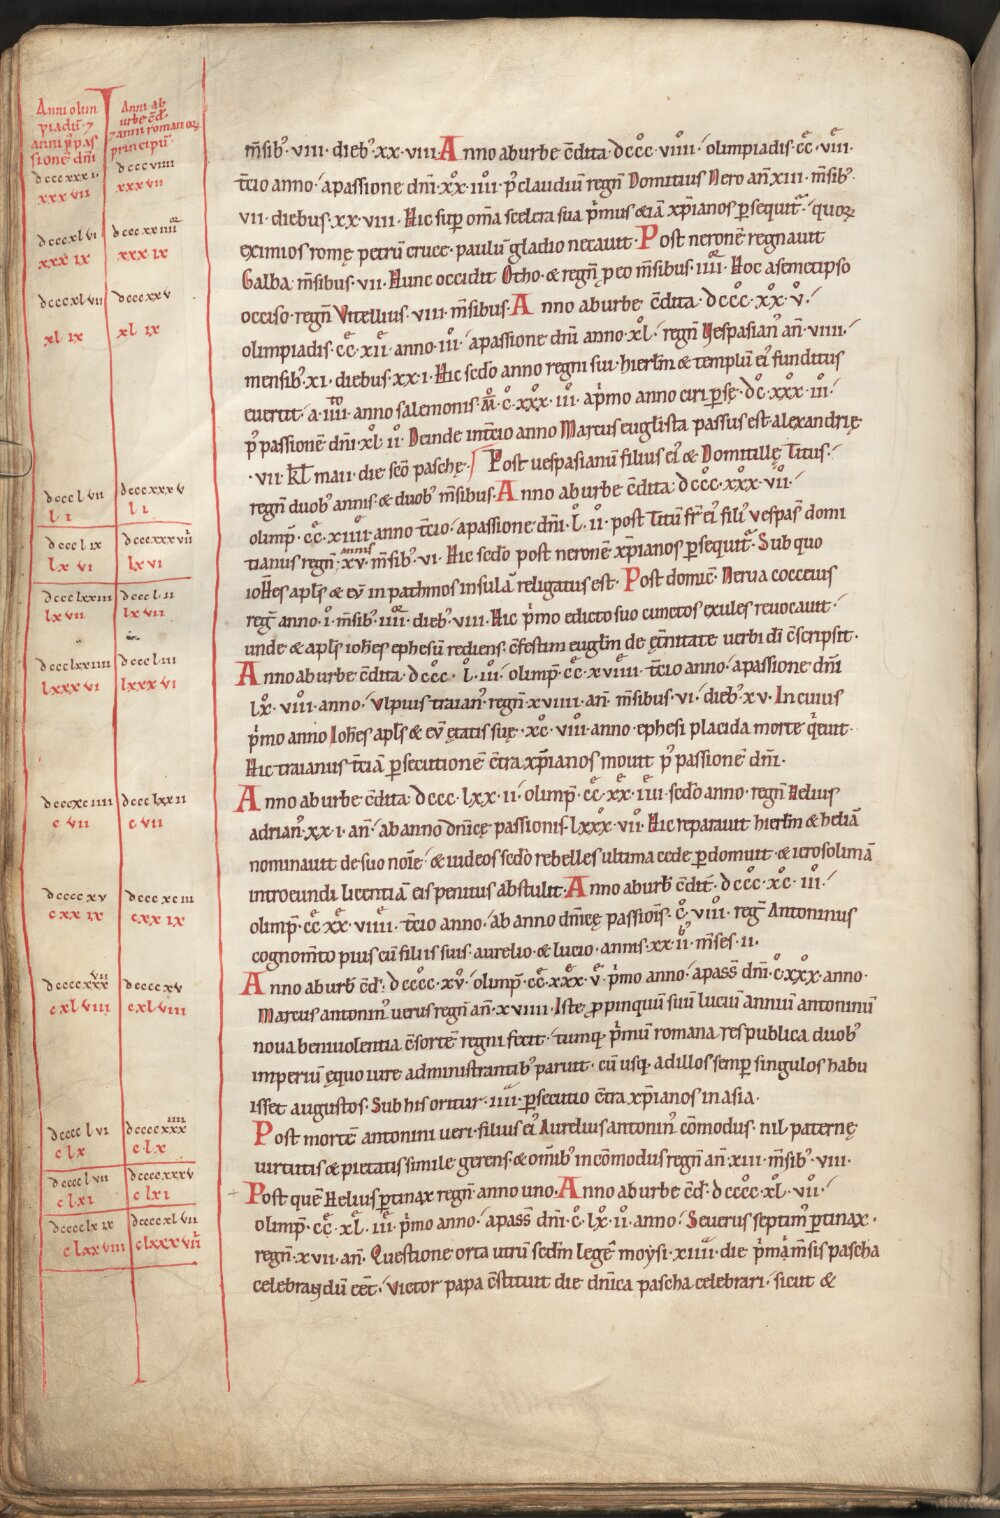 Anni olim
piadū ⁊
anni p̄ pas
sionē dn̄i
Anni ab
urbe c̄d̄
⁊ anni romanoꝝ
principū
dcccxxxi
xxxvii
dcccviiii
xxxvii
dcccxlvi
xxxix
dcccxxiiii
xxxix
dcccxlvii
xlix
dcccxxv
xlix
dcccclvii
li
dcccxxxv
li
dccclix
lxvi
dcccxxxvii
lxvi
dccclxxiii
lxvii
dccclii
lxvii
dccclxxiiii
lxxxvi
dcccliii
lxxxvi
dcccxciiii
cvii
dccclxxii
cvii
dccccxv
cxxix
dcccxciii
cxxix
dccccxxxvii
cxlviii
dccccxv
cxlviii
dcccclvi
clx
dccccxxxiiii
clx
dcccclvii
clxi
dccccxxxv
clxi
dcccclxix
clxxviii
dccccxlvii
clxxxvii
m̄sibꝰ·viii·diebꝰ·xx·viii· Anno ab urbe c̄dita·dccc·viiii·olimpiadis·cc·viii·
t̄cio anno·a passione dn̄i·xx·iiii·pꝰ claudiū regn̄ Domitius Nero an̄ xiii·m̄sibꝰ·
vii·diebus·xx·viii·Hic suꝑ om̄a scelera sua p̓mus &iā xp̄ianos ꝑsequit᷑·quoꝝ
eximios romę petrū cruce·paulū gladio necauit· Post neronē regnauit
Galba m̄sibus·vii·Hunc occidit Otho·& regn̄ ꝑ eo m̄sibus·iiii·Hoc a semetipso
occiso·regn̄ Vitellius·viii·m̄sibus· Anno ab urbe c̄dita·dccc·xx·v·
olimpiadis·cc·xii·anno·iii·a passione dn̄i anno·xl·regn̄ Vespasianꝰ an̄·viiii·
mensibꝰ·xi·diebus·xx·i·Hic sc̄do anno regni sui·hierlm̄ & templū eiꝰ funditus
euertit·a·iiii·anno salemonis·m̄·c·xxx·iii·a p̓mo anno ciri ꝑsę·dc·xxx·iii·
pꝰ passionē dn̄i·xl·ii·Deinde in t̄cio anno Marcus eugl̄ista passus est alexandrię
·vii·kl̄ maii·die sc̄o paschę· Post uespasianū filius eiꝰ & Domitillę Titus·
regn̄ duobꝰ annis·& duobꝰ m̄sibus· Anno ab urbe c̄dita·dccc·xxx·vii·
olimp̄·cc·xiiii·anno t̄cio·a passione dn̄i·l·ii·post Titū fr̄ eiꝰ filiꝰ vespas̄ domi
tianus regn̄·annis xv·m̄sibꝰ·vi·Hic sc̄do post neronē xp̄ianos ꝑsequit᷑·Sub quo
ioh̄es apl̄s & ev̄ in pathmos insulā religatus est· Post domic̄·Nerua cocceius
reg̅ anno·i·m̄sibꝰ·iiii·diebꝰ·viii·Hic p̓mo edicto suo cunctos exules reuocauit·
unde & apl̄s ioh̄es ephesū rediens·c̄festim eugl̄m de ęt̄nitate uerbi dī c̄scripsit·
Anno ab urbe c̄dita·dccc·l·iii·olimp̄·cc·xviiii·t̄cio anno·a passione dn̄i
lx·viii·anno·vlpius traianꝰ·regn̄·xviiii·an̄·m̄sibus·vi·diebꝰ·xv·In cuius
p̓mo anno Ioh̄es apl̄s & ev̄ ętatis suę·xc·viii·anno·ephesi placida morte q̓euit·
Hic traianus t̄ciā ꝑsecutionē c̄tra xp̄ianos mouit pꝰ passionē dn̄i·
Anno ab urbe c̄dita·dccc·lxx·ii·olimp̄·cc·xx·iiii·sc̄do anno·regn̄ Helius
adrianꝰ·xx·i·an̄·ab anno dn̄icę passionis·lxxx·vii·Hic reparauit hierlm̄ & heliā
nominauit de suo noīe·& iudeos sc̄do rebelles ultima cede ꝑdomuit·& ierosolimā
introeundi licentiā eis penitus abstulit· Anno ab urb̄ c̄dit̄·dccc·xc·iii·
olimp̄·cc·xx·viiii·t̄cio anno·ab anno dn̄icę passiōis·c·viii·reg̅ Antoninus
cognom̄to pius cū filiis suis·aurelio·& lucio·annis·xx·ii·m̄ses·ii·
Anno ab urb̄ c̄d̄·dcccc·xv·olimp̄·cc·xxx·v·p̓mo anno·a pass̄ dn̄i·cxxx·anno·
Marcus antoninꝰ uerus regn̄ an̄·xviiii·Iste ꝓpinquū suū luciū anniū antoninū
noua beniuolentia c̄sortē regni fecit·tunq; p̓mū romana res publica duobꝰ
imperiū ęquo iure administrantibꝰ paruit·cū usq; ad illos semꝑ singulos habu
isset augustos·Sub his oritur·iiii·ꝑsecutio c̄tra xp̄ianos in asia·
Post mortē antonini ueri·filius eiꝰ Aurelius antoninꝰ cōmodus·nil paternę
uirtutis & pietatis simile gerens·& om̄ibꝰ incōmodus regn̄ an̄·xiii·m̄sibꝰ·viii·
Post quē Helius ꝑtinax regn̄ anno uno· Anno ab urbe c̄d̄·dcccc·xl·vii·
olimp̄·cc·xl·iii·p̓mo anno·a pass̄ dn̄i·c·lx·ii·anno·Seuerus septimꝰ ꝑtinax·
regn̄·xvii·an̄·Questione orta utrū sc̄dm̄ legē moysi·xiiii·die p̓mi m̄sis pascha
celebrandū e̅et·victor papa c̄stituit die dn̄ica pascha celebrari·sicut &